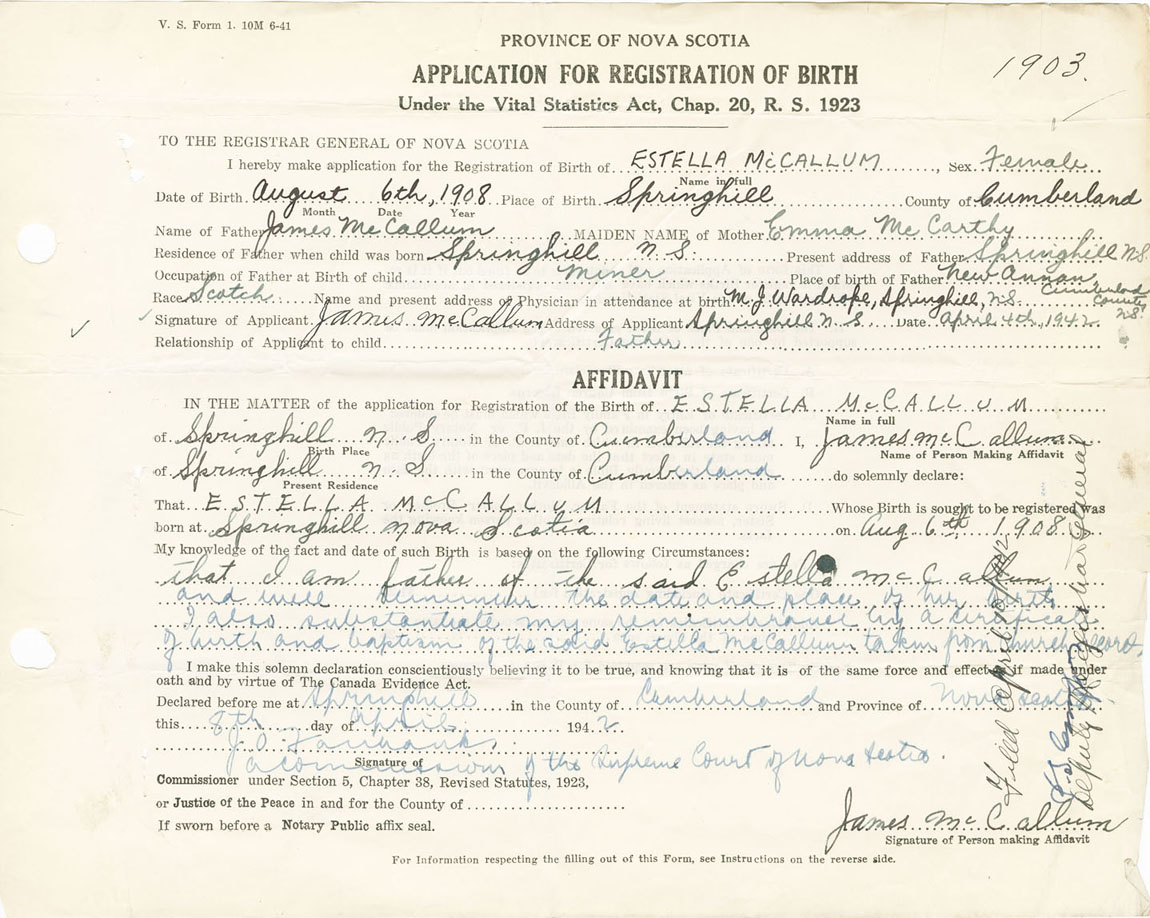 V. S. Form 1. 10M 6-41
PROVINCE OF NOVA SCOTIA
1903.
APPLICATION FOR REGISTRATION OF BIRTH
Under the Vital Statistics Act, Chap. 20, R. S. 1923
TO THE REGISTRAR GENERAL OF NOVA SCOTIA
I hereby make application for the Registration of Birth of ESTELLA McCALLUM, Sex Female
Name in full
Date of Birth August 6th, 1908 Place of Birth Springhill County of Cumberland
Month Date Year
Name of Father James McCallum MAIDEN NAME of Mother Emma McCarthy
Residence of Father when child was born Springhill N.S. Present address of Father Springhill N.S.
Occupation of Father at Birth of child Miner Place of birth of Father New Annan
Cumberlad County N.S.
Race Scotch Name and present address of Physician in attendance at birth M.J. Wardrope, Springhill, N.S.
Signature of Applicant James McCallum Address of Applicant Springhill N.S. Date April 4th, 1942
Relationship of Applicant to child Father
AFFIDAVIT
IN THE MATTER of the application for Registration of the Birth of ESTELLA McCALLUM
Name in full
of Springhill N.S. in the County of Cumberland I, James McCallum
Birth Place Name of Person Making Affidavit
of Springhill N.S. in the County of Cumberland do solemnly declare:
Present Residence
That ESTELLA McCALLUM Whose Birth is sought to be registered was
born at Springhill Nova Scotia on Aug 6th 1908
My knowledge of the fact and date of such Birth is based on the following Circumstances:
that I am father of the said Estella McCallum
and well remember the date and place of her birth
I also substantiate my remembrance by a certificate
of birth and baptism of the said Estella McCallum taken from church records.
I make this solemn declaration conscientiously believing it to be true, and knowing that it is of the same force and effect if made under
oath and by virtue of The Canada Evidence Act.
Declared before me at Springhill in the County of Cumberland and Province of Nova Scotia
this 8th day of April 1942
J.O. Fairbanks
Signature of
a commissioner of the Supreme Court of Nova Scotia.
Commissioner under Section 5, Chapter 38, Revised Statutes, 1923,
or Justice of the Peace in and for the County of
If sworn before a Notary Public affix seal.
James McCallum
Signature of Person making Affidavit
For Information respecting the filling out of this Form, see Instructions on the reverse side.
Filed April
Deputy Registrar General